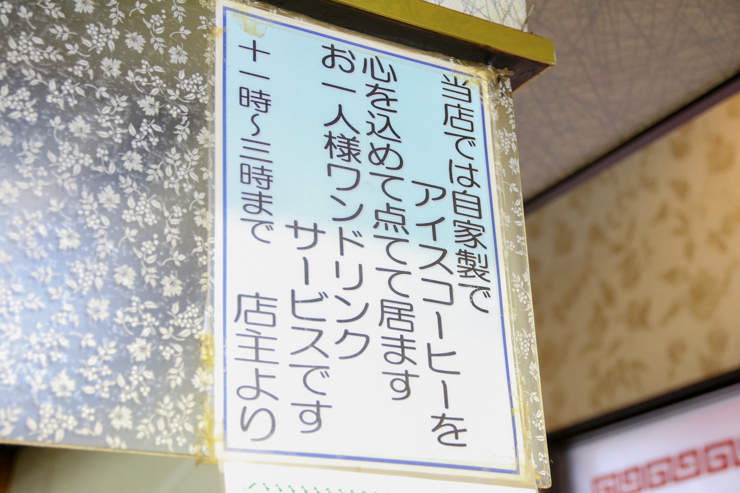 当店では自家製で
アイスコーヒーを
心を込めて点てて居ます
お一人様ワンドリンク
サービスです
十一時〜三時まで
店主より